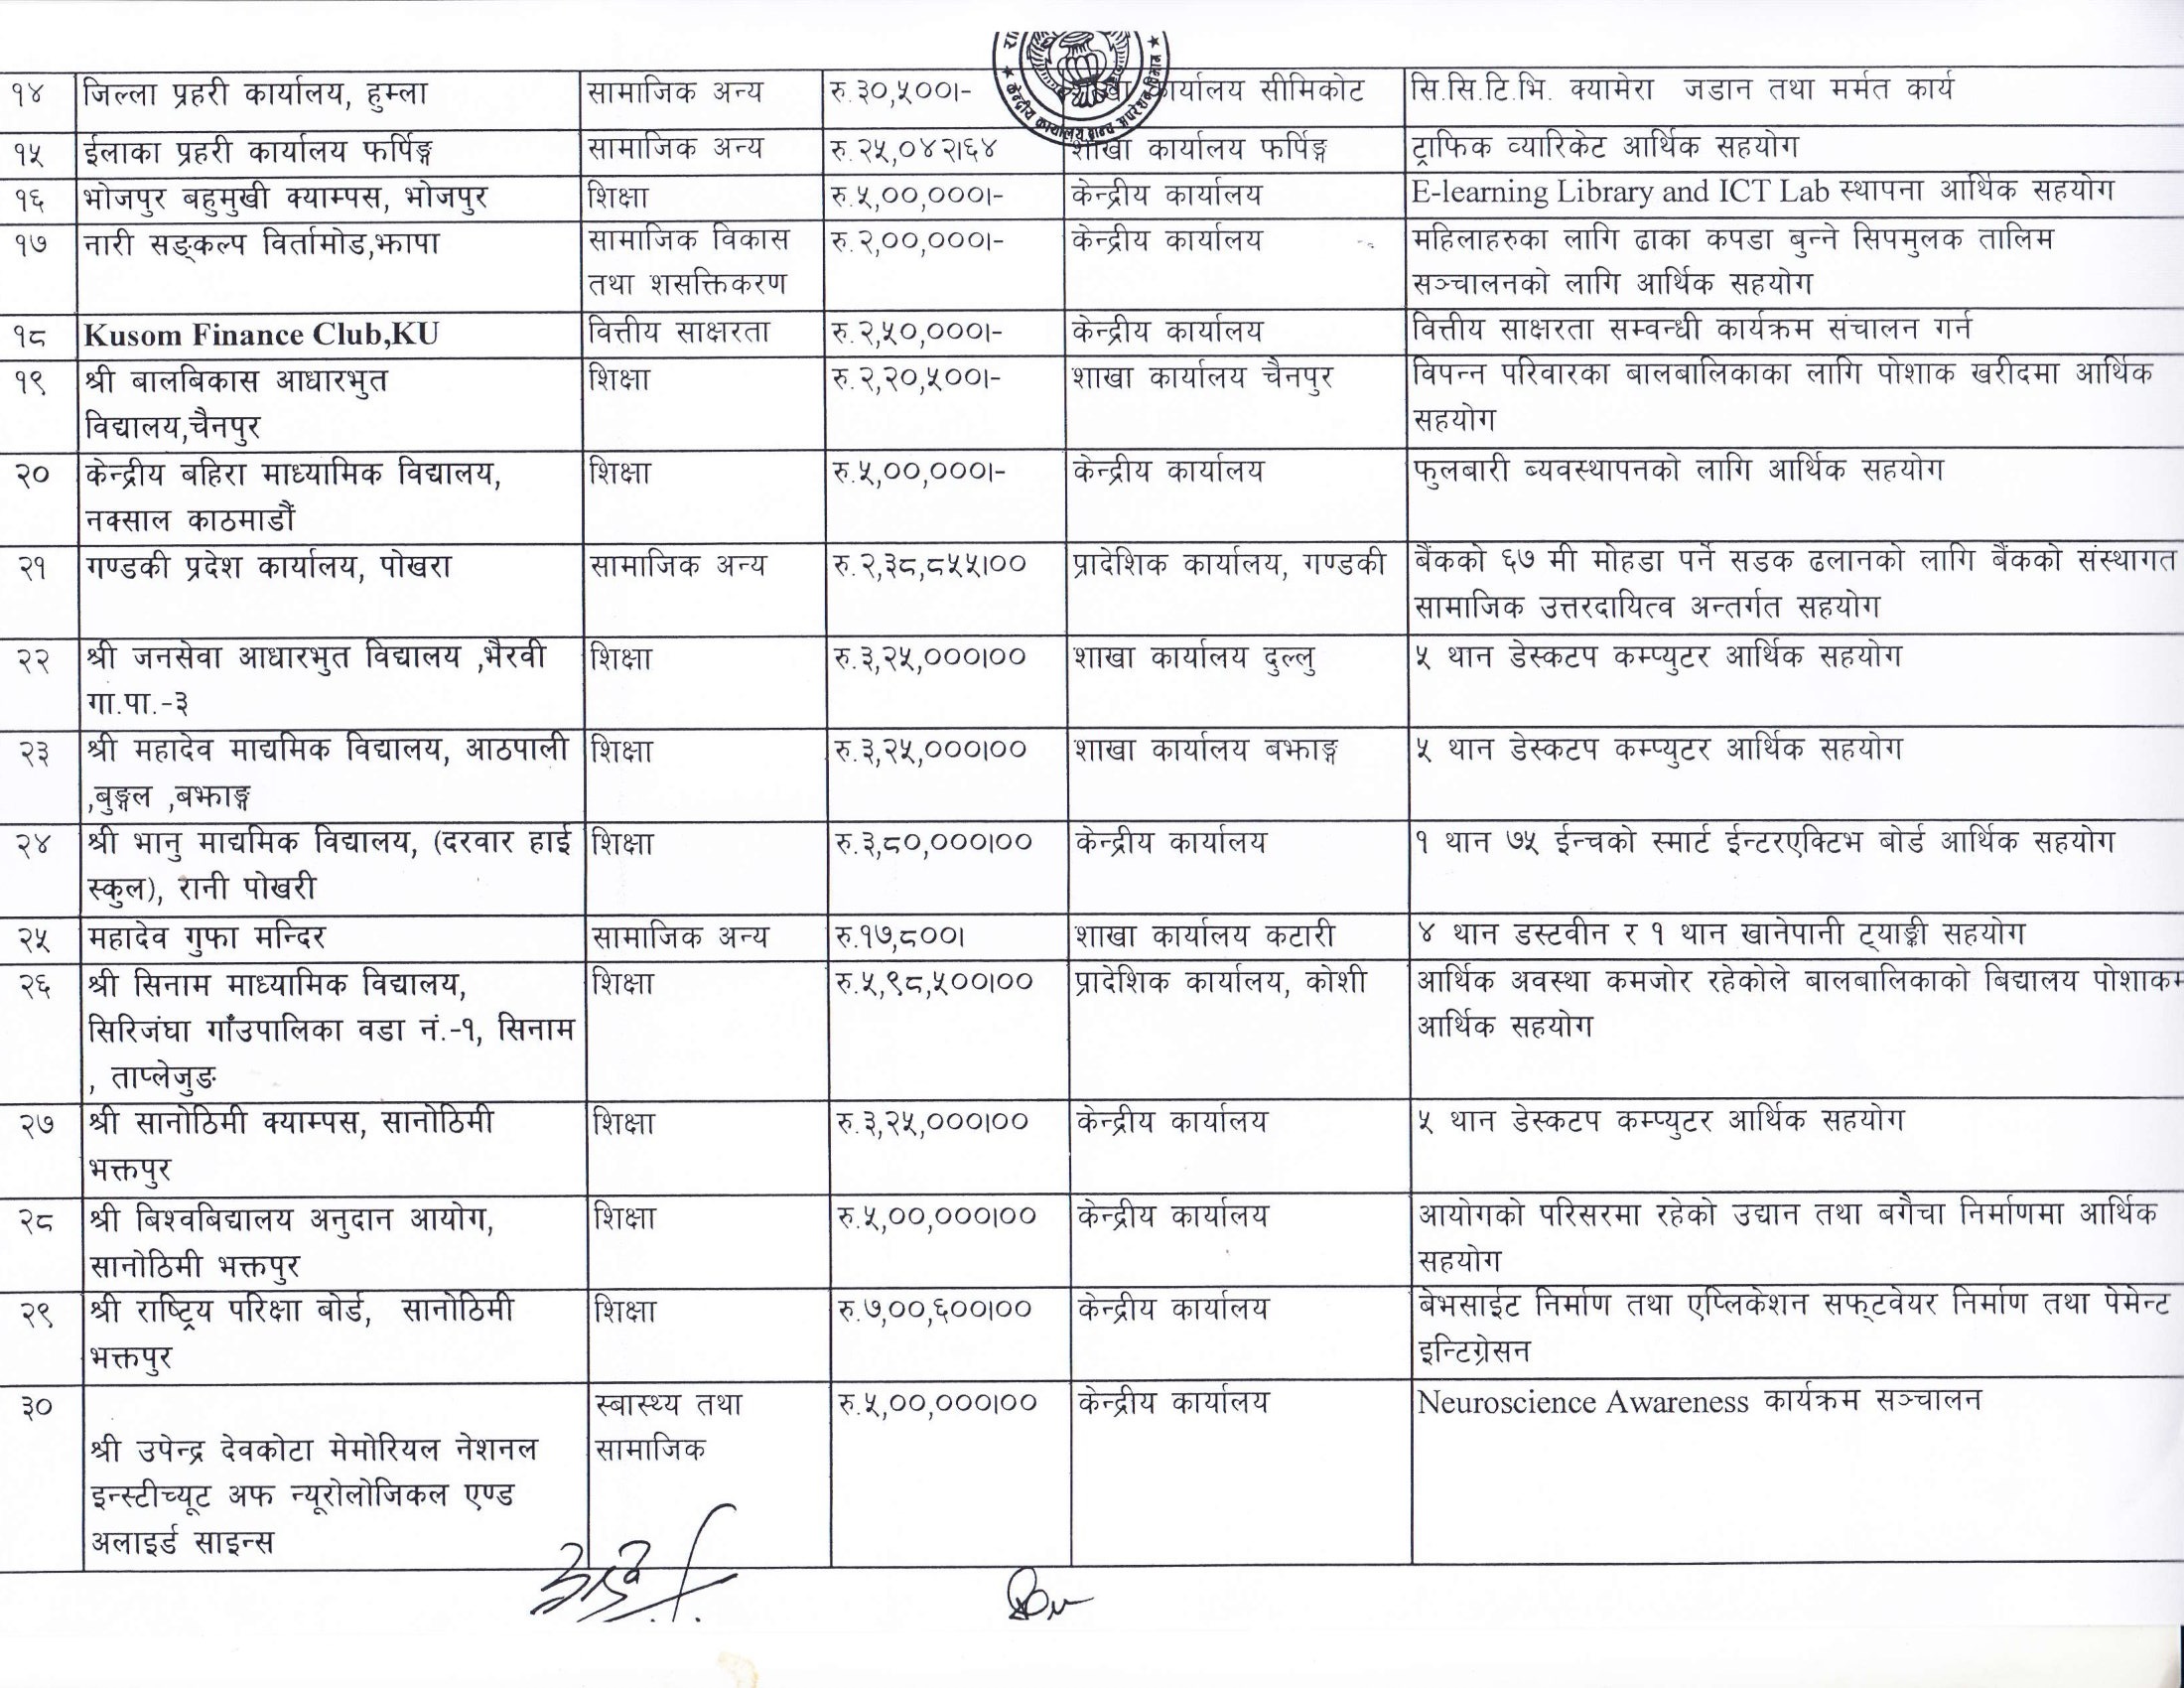 १४ जिल्ला प्रहरी कार्यालय, हुम्ला सामाजिक अन्य रु.३०,५००।- शाखा कार्यालय सीमिकोट सि.सि.टि.भि. क्यामेरा जडान तथा मर्मत कार्य
१५ ईलाका प्रहरी कार्यालय फर्पिङ्ग सामाजिक अन्य रु.२५,०४२।६४ शाखा कार्यालय फर्पिङ्ग ट्राफिक व्यारिकेट आर्थिक सहयोग
१६ भोजपुर बहुमुखी क्याम्पस, भोजपुर शिक्षा रु.५,००,०००।- केन्द्रीय कार्यालय E-learning Library and ICT Lab स्थापना आर्थिक सहयोग
१७ नारी सङ्कल्प विर्तामोड,झापा सामाजिक विकास रु.२,००,०००।- केन्द्रीय कार्यालय महिलाहरुका लागि ढाका कपडा बुन्ने सिपमुलक तालिम
तथा शसक्तिकरण सञ्चालनको लागि आर्थिक सहयोग
१८ Kusom Finance Club,KU वित्तीय साक्षरता रु.२,५०,०००।- केन्द्रीय कार्यालय वित्तीय साक्षरता सम्वन्धी कार्यक्रम संचालन गर्न
१९ श्री बालबिकास आधारभुत शिक्षा रु.२,२०,५००।- शाखा कार्यालय चैनपुर विपन्न परिवारका बालबालिकाका लागि पोशाक खरीदमा आर्थिक
विद्यालय,चैनपुर सहयोग
२० केन्द्रीय बहिरा माध्यामिक विद्यालय, शिक्षा रु.५,००,०००।- केन्द्रीय कार्यालय फुलबारी ब्यवस्थापनको लागि आर्थिक सहयोग
नक्साल काठमाडौं
२१ गण्डकी प्रदेश कार्यालय, पोखरा सामाजिक अन्य रु.२,३८,८५५।०० प्रादेशिक कार्यालय, गण्डकी बैंकको ६७ मी मोहडा पर्ने सडक ढलानको लागि बैंकको संस्थागत
सामाजिक उत्तरदायित्व अन्तर्गत सहयोग
२२ श्री जनसेवा आधारभुत विद्यालय ,भैरवी शिक्षा रु.३,२५,०००।०० शाखा कार्यालय दुल्लु ५ थान डेस्कटप कम्प्युटर आर्थिक सहयोग
गा.पा.-३
२३ श्री महादेव माद्यमिक विद्यालय, आठपाली शिक्षा रु.३,२५,०००।०० शाखा कार्यालय बझाङ्ग ५ थान डेस्कटप कम्प्युटर आर्थिक सहयोग
,बुङ्गल ,बझाङ्ग
२४ श्री भानु माद्यमिक विद्यालय, (दरवार हाई शिक्षा रु.३,८०,०००।०० केन्द्रीय कार्यालय १ थान ७५ ईन्चको स्मार्ट ईन्टरएक्टिभ बोर्ड आर्थिक सहयोग
स्कुल), रानी पोखरी
२५ महादेव गुफा मन्दिर सामाजिक अन्य रु.१७,८००। शाखा कार्यालय कटारी ४ थान डस्टवीन र १ थान खानेपानी ट्याङ्की सहयोग
२६ श्री सिनाम माध्यामिक विद्यालय, शिक्षा रु.५,९८,५००।०० प्रादेशिक कार्यालय, कोशी आर्थिक अवस्था कमजोर रहेकोले बालबालिकाको बिद्यालय
सिरिजंघा गाँउपालिका वडा नं.-१, सिनाम आर्थिक सहयोग
, ताप्लेजुङ
२७ श्री सानोठिमी क्याम्पस, सानोठिमी शिक्षा रु.३,२५,०००।०० केन्द्रीय कार्यालय ५ थान डेस्कटप कम्प्युटर आर्थिक सहयोग
भक्तपुर
२८ श्री बिश्वबिद्यालय अनुदान आयोग, शिक्षा रु.५,००,०००।०० केन्द्रीय कार्यालय आयोगको परिसरमा रहेको उद्यान तथा बगैचा निर्माणमा आर्थिक
सानोठिमी भक्तपुर सहयोग
२९ श्री राष्ट्रिय परिक्षा बोर्ड, सानोठिमी शिक्षा रु.७,००,६००।०० केन्द्रीय कार्यालय बेभसाईट निर्माण तथा एप्लिकेशन सफ्टवेयर निर्माण तथा पेमेन्ट
भक्तपुर इन्टिग्रेसन
३० स्बास्थ्य तथा रु.५,००,०००।०० केन्द्रीय कार्यालय Neuroscience Awareness कार्यक्रम सञ्चालन
श्री उपेन्द्र देवकोटा मेमोरियल नेशनल सामाजिक
इन्स्टीच्यूट अफ न्यूरोलोजिकल एण्ड
अलाइर्ड साइन्स